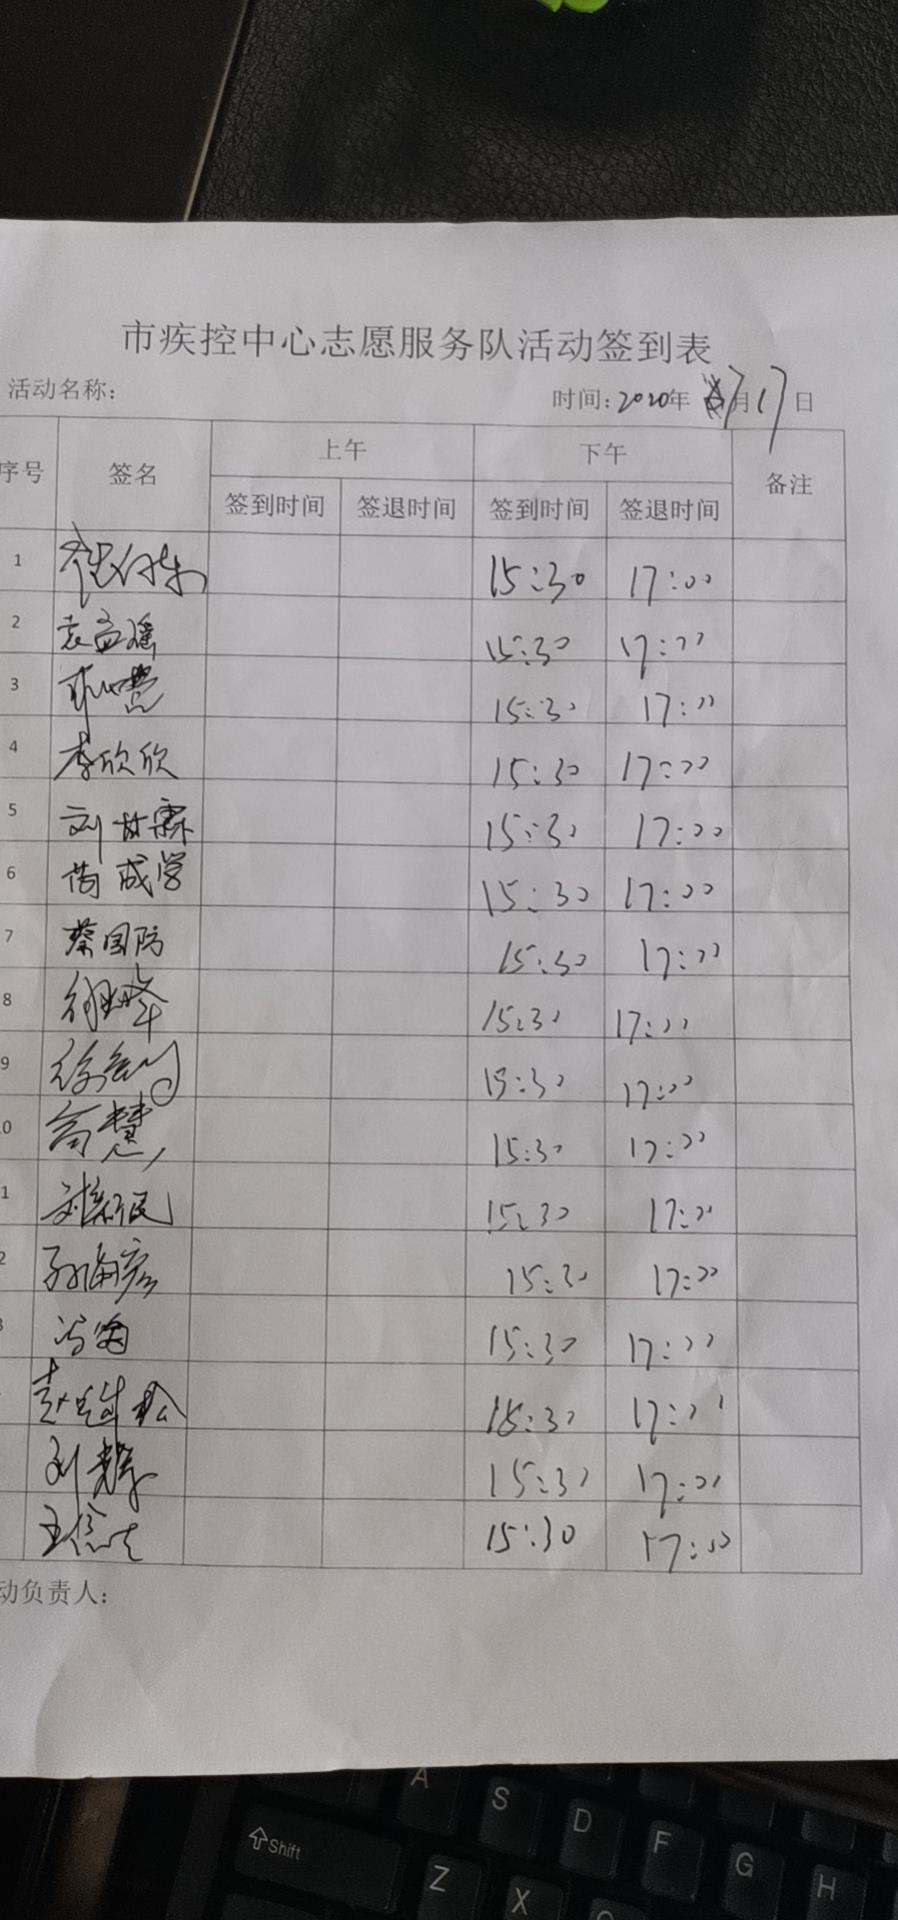 市疾控中心志愿服务队活动签到表
活动名称: 时间: 2020年 7月17日
序号 签名 上午 下午 备注
签到时间 签退时间 签到时间 签退时间
1 15:30 17:00
2 袁孟瑶 15:30 17:00
3 15:30 17:00
4 李欣欣 15:30 17:00
5 刘甘霖 15:30 17:00
6 成学 15:30 17:00
7 蔡国防 15:30 17:00
8 15:30 17:00
9 15:30 17:00
0 高慧 15:30 17:00
1 刘新民 15:30 17:00
2 孙海彦 15:30 17:00
3 冯 15:30 17:00
赵 松 15:30 17:00
刘 15:30 17:00
王信 15:30 17:00
动负责人:
A S D F G H
Shift Z X C